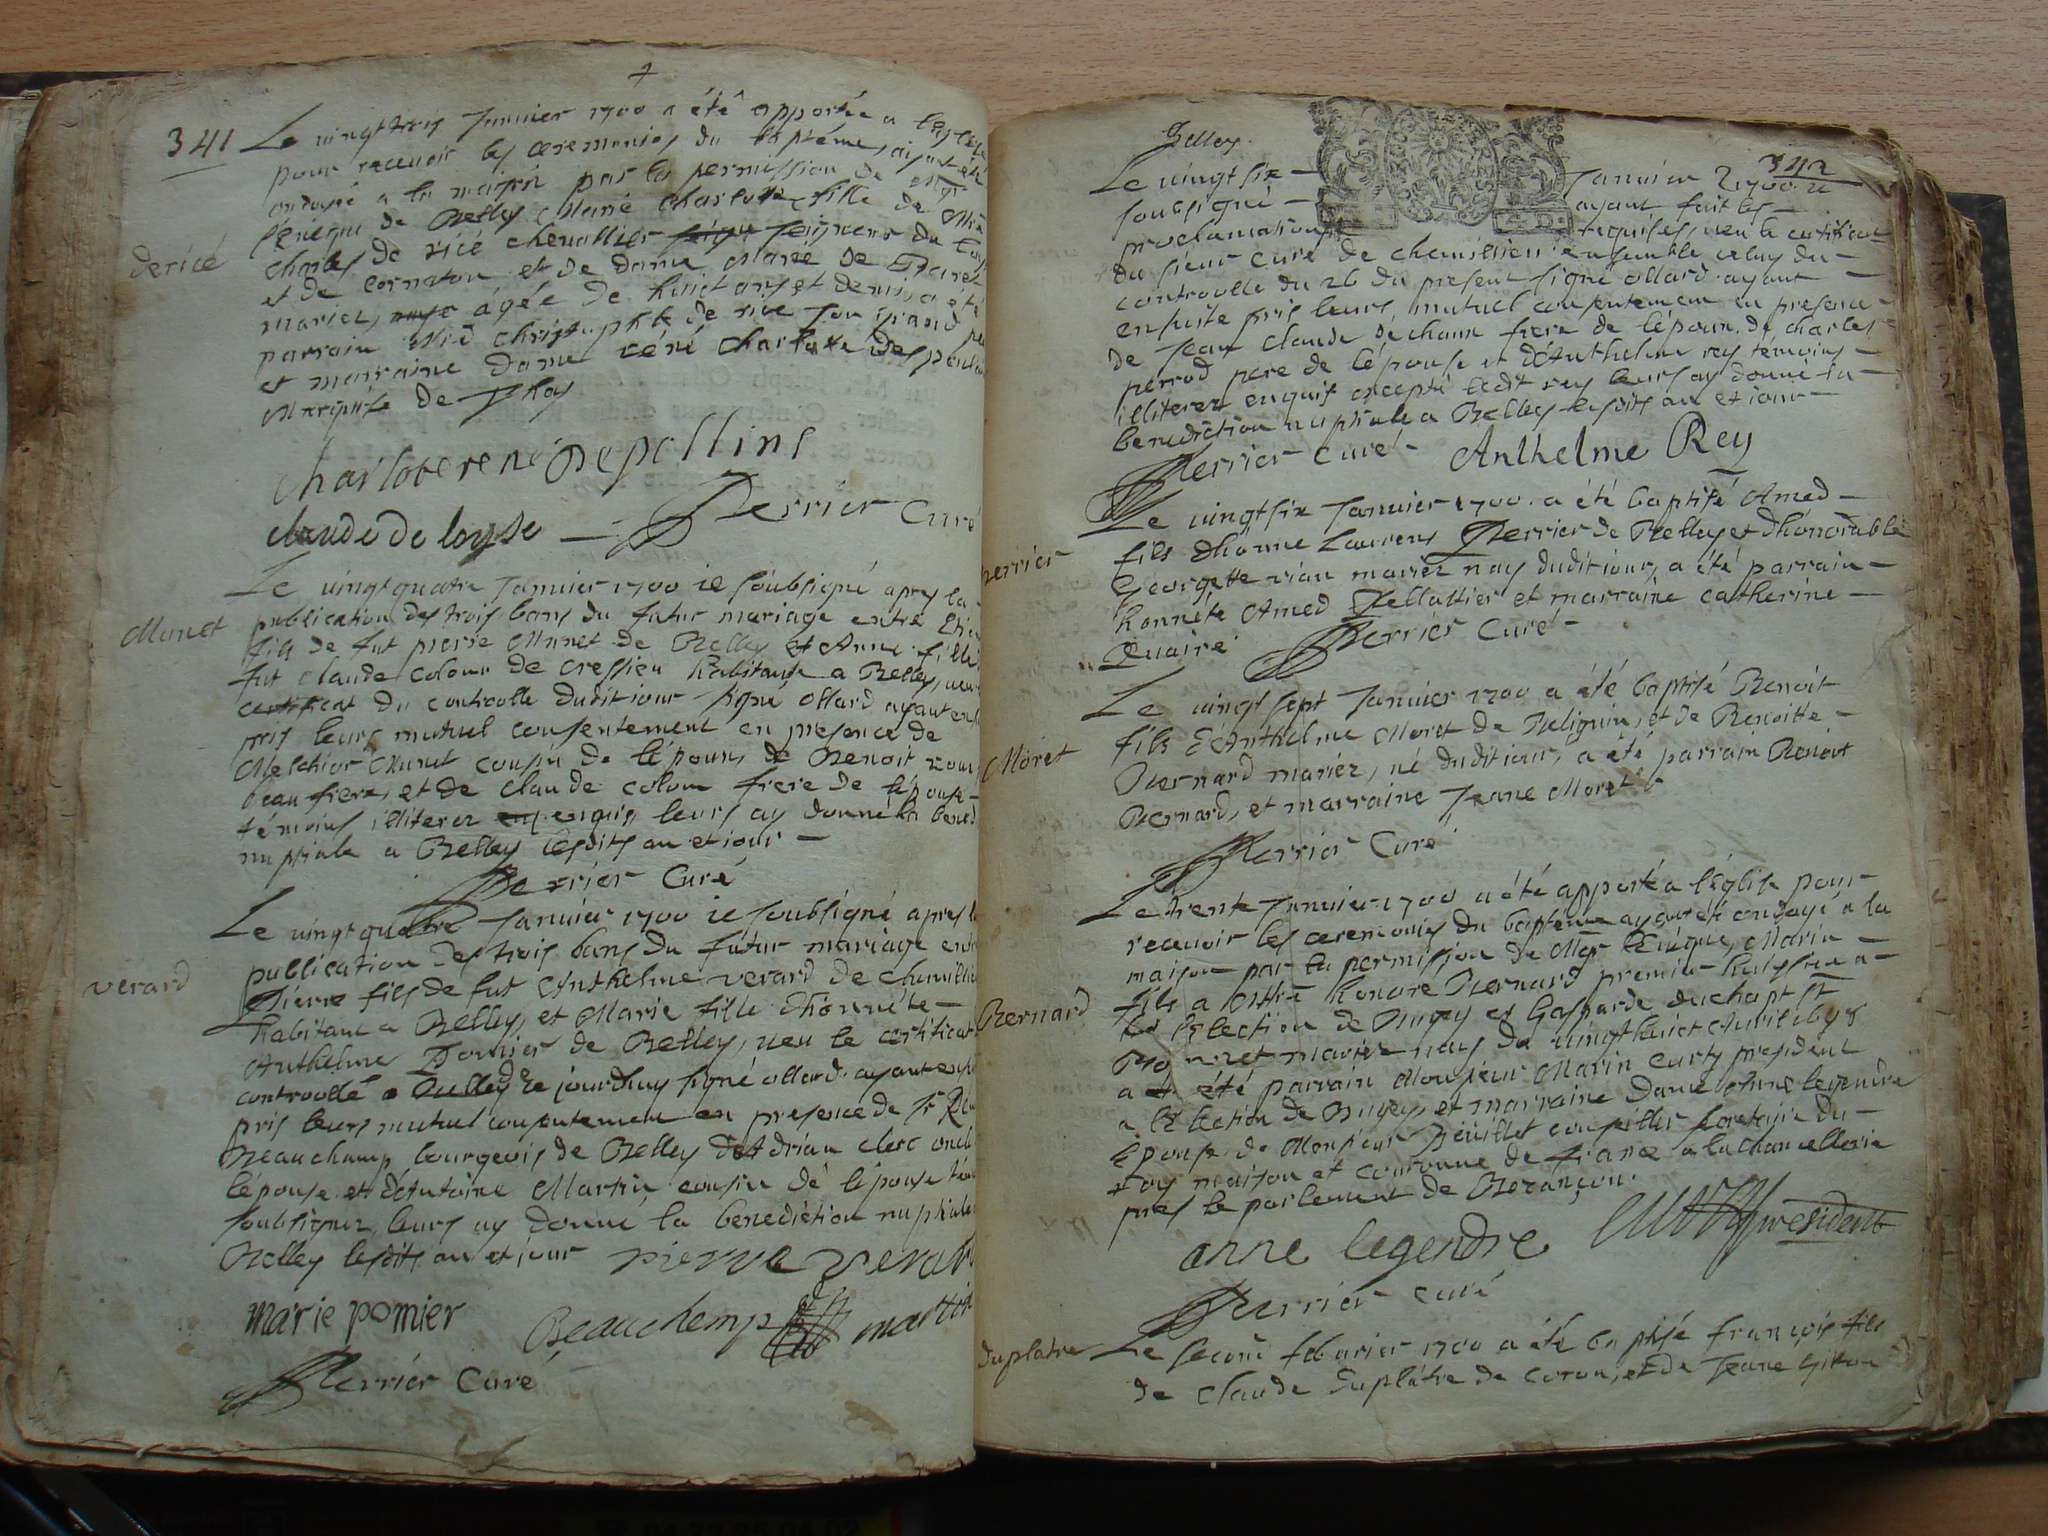 341
Le vingt trois Janvier 1700 a été apportée a
pour recevoir les ceremonies du baptéme, ayant été
ondoyée a la maison par la permission de
de Belley Marie Charlotte fille de
charles de ricé chevallier seigneur du
dericé
et de cornaton et de dame Marie de
mariez, agée de huict ans et demis, a été
parrain christophle de rice son grand
et marraine dame réné charlotte
Marquise de
charlote rené Depollins
claude de loyse
Perrier Curé
Le vingt quatre Janvier 1700 ie soubsigné apres la
Munet
publication des trois bans du futur mariage entre
fils de fut pierre Munet de Belley et Anne fille
fut claude colomb de cressieu habitante a Belley, veu
certificat du controolle duditiour signé Ollard ayant
pris leurs mutuel consentement en presence de
Melchior Munet cousin de lépoux, de Benoit
beau frere, et de claude colomb frere de lépouse
témoins illiterez enquis, leurs ay donné la
nuptiale a Belley lesdits an et iour
Perrier Curé
Le vingt quatre Janvier 1700 ie soubsigné apres
publication des trois bans du futur mariage
verard
Pierre fils de fut Anthelme verard de
habitant a Belley, et Marie fille d'honnéte
Anthelme Pomier de Belley, veu le certificat
controollé a Belley ce jourdhuy signé Ollard ayant
pris leurs mutuel consentement en presence de
Beauchamp bourgeois de Belley d'Adrian clerc oncle
lépouse et d'Antoine Martin cousin de lépouse
soubsignez, leurs ay donné la benediction nuptiale
Belley lesdits an et jour pierre verard
Marie pomier Beauchemp martin
Perrier Curé
Belley
342
Le vingt six Janvier 1700
soubsigné ayant fait les
proclamations requises, veu le certificat
du sieur curé de ensemble celuy du
controolle du 26 du present signé Ollard ayant
ensuite pris leurs mutuel consentement en presence
de Jean claude frere de lépoux, de charles
perrod pere de lépouse et d'Anthelme rey témoins
illiterez enquis excepté ledit rey leurs ay donné la
benediction nuptiale a Belley lesdits an et iour
Perrier curé Anthelme Rey
Le vingt six Janvier 1700 a été baptisé Amed
perrier
fils d'honné Laurens Perrier de Belley et d'honorable
Georgette mariez nay duditiour, a été parrain
honnéte Amed Pellattier et marraine catherine
Quairé Perrier Curé
Le vingt sept Janvier 1700 a été baptisé Benoit
fils d'Anthelme Moret de et de Benoitte
Moret
Bernard mariez, né duditiour, a été parrain Benoit
Bernard, et marraine Jeane Moret
Perrier Curé
Le trente Janvier 1700 a été apporté a léglise pour
recevoir les ceremonies du baptéme ayant été ondoyé a la
maison par la permission de Mgr lEvéque, Marin
fils a honoré Bernard premier
Bernard
lElection de Bugey et Gasparde
mariez nays du vingthuict Avril
a été parrain Monsieur Marin curty president
a lElection de Bugey, et marraine Dame Anne legendre
épouse de Monsieur conseiller secretaire du
roy maison et couronne de france a la chancellerie
pres le parlement de Besançon.
anne legendre president
Perrier curé
duplatre
Le second febvrier 1700 a été baptisé françois fils
de claude duplâtre de coron, et de Jeane